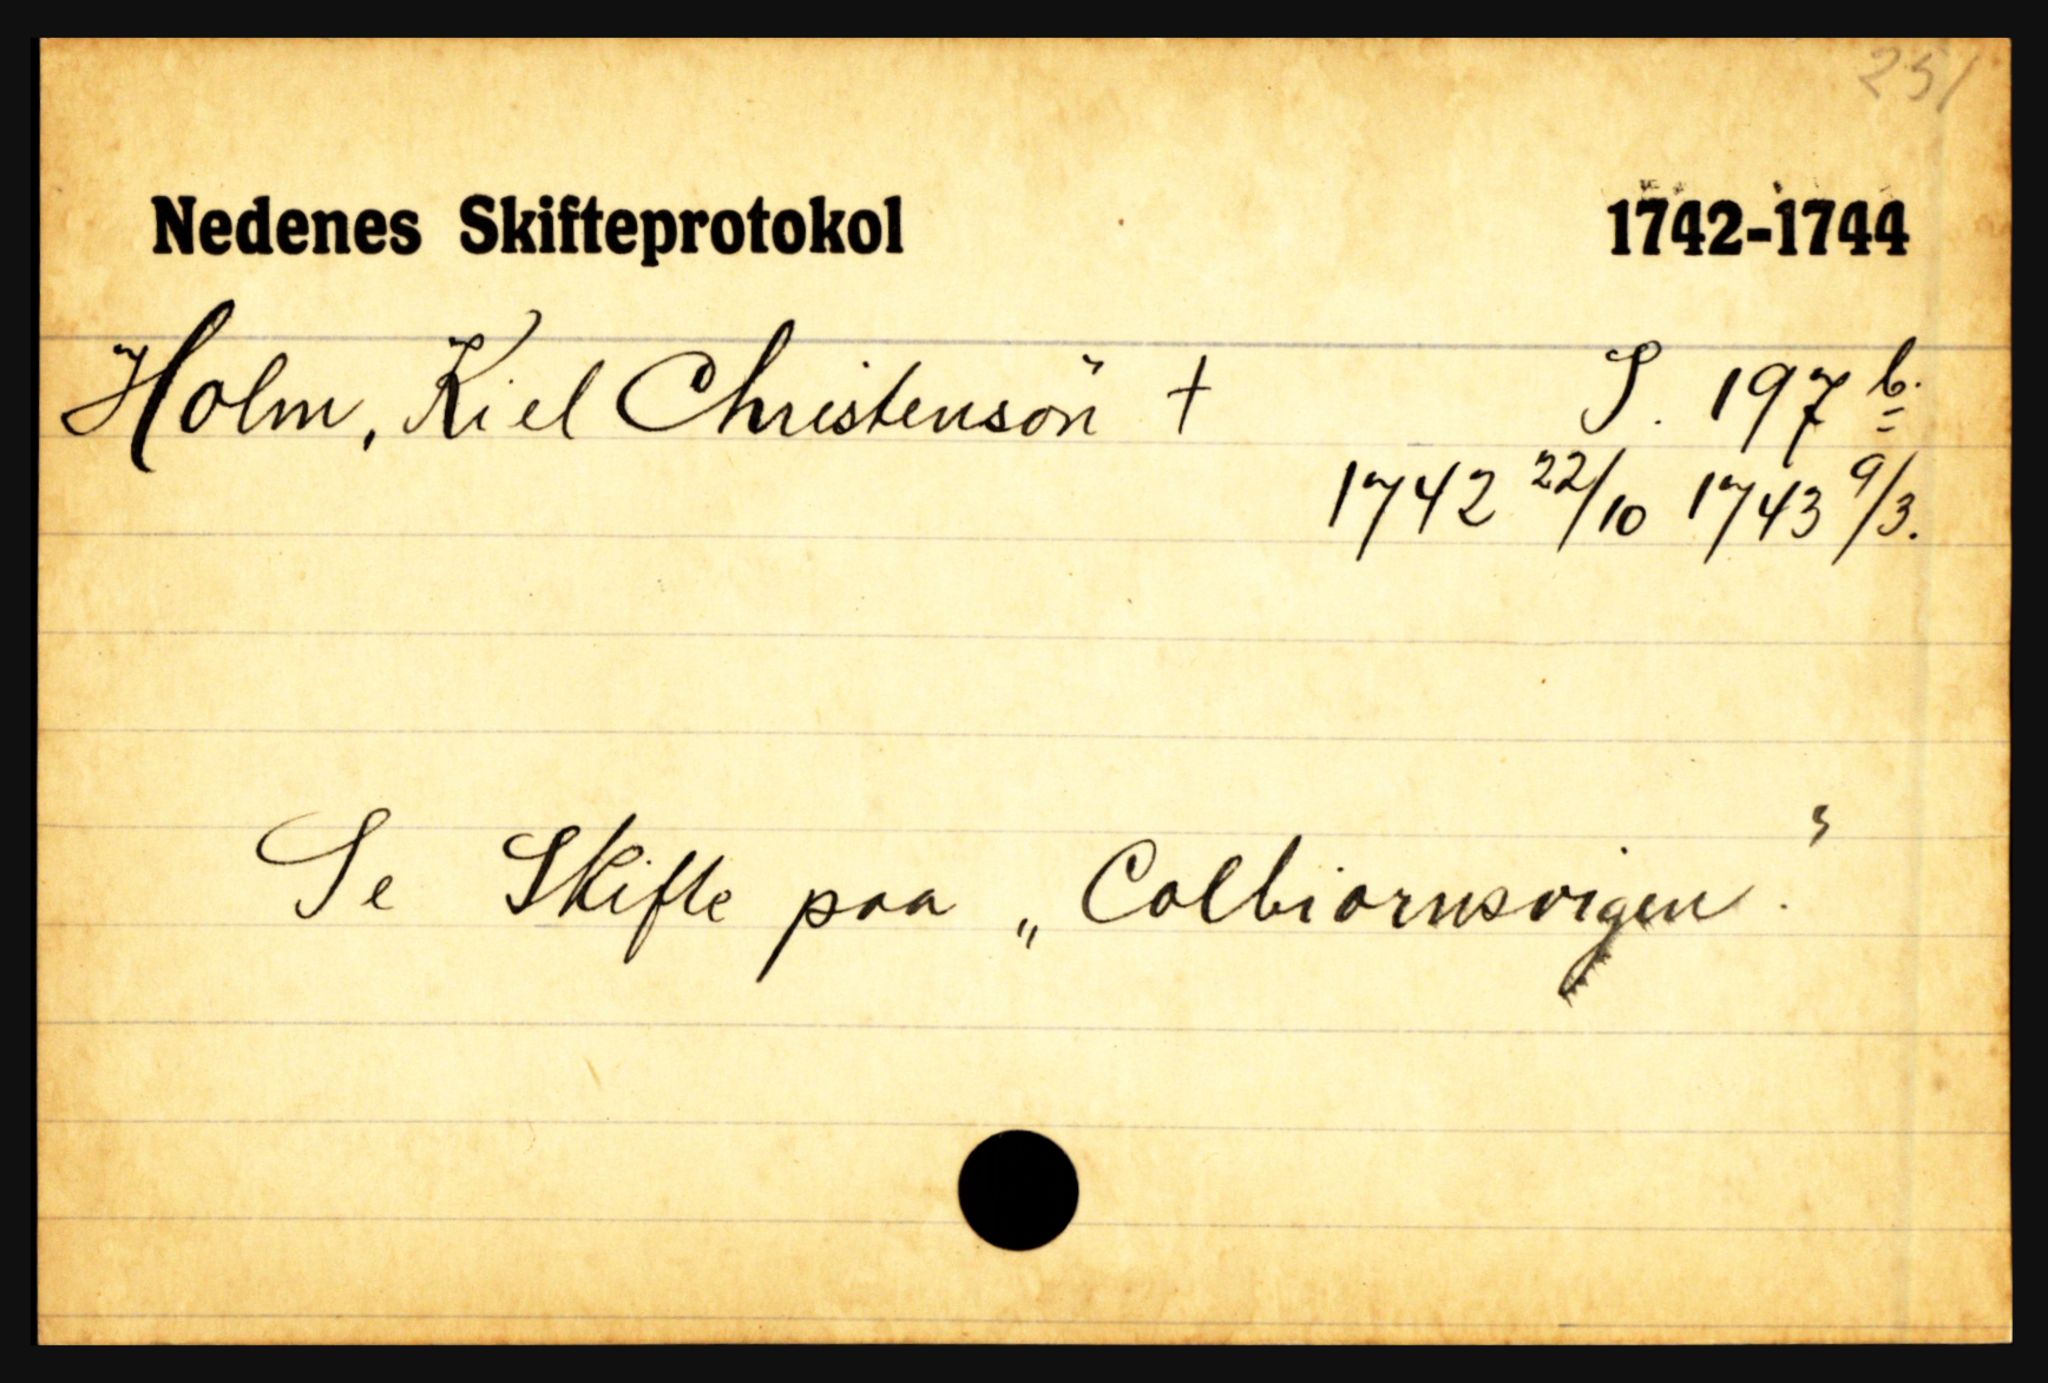 251
Nedenes Skifteprotokol 1742-1744
Holm, Kiel Christensön † S. 197 b.
1742 22/10 1743 9/3.
Se Skifte paa „Colbiornsvigen."